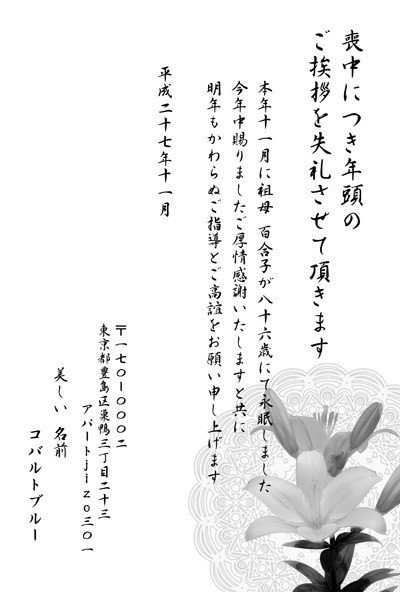 喪中につき年頭の
ご挨拶を失礼させて頂きます
本年十一月に祖母 百合子が八十六歳にて永眠しました
今年中賜りましたご厚情感謝いたしますと共に
明年もかわらぬご指導とご高誼をお願い申し上げます
平成二十七年十一月
〒一七〇-〇〇〇二
東京都豊島区巣鴨三丁目二十三
アパートjizo三〇一
美しい 名前
コバルトブルー